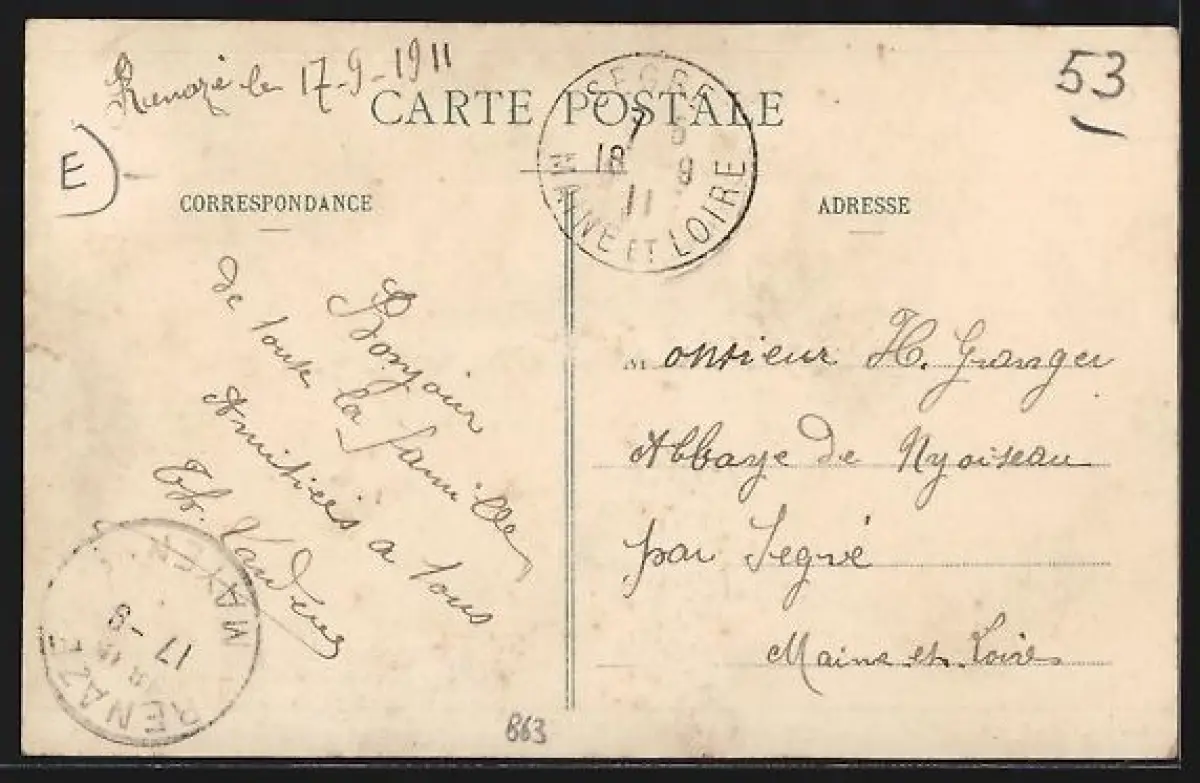 Renazé le 17-9-1911
CARTE POSTALE
53
E
SEGRÉ
7 5
18 9
11
MAINE ET LOIRE
CORRESPONDANCE
ADRESSE
Bonjour
de toute la famille
Amitiés a tous
Th.
Monsieur H. Granger
Abbaye de Nyoiseau
par Segré
Maine et Loire
RENAZÉ
17 -9
MAYENNE
863